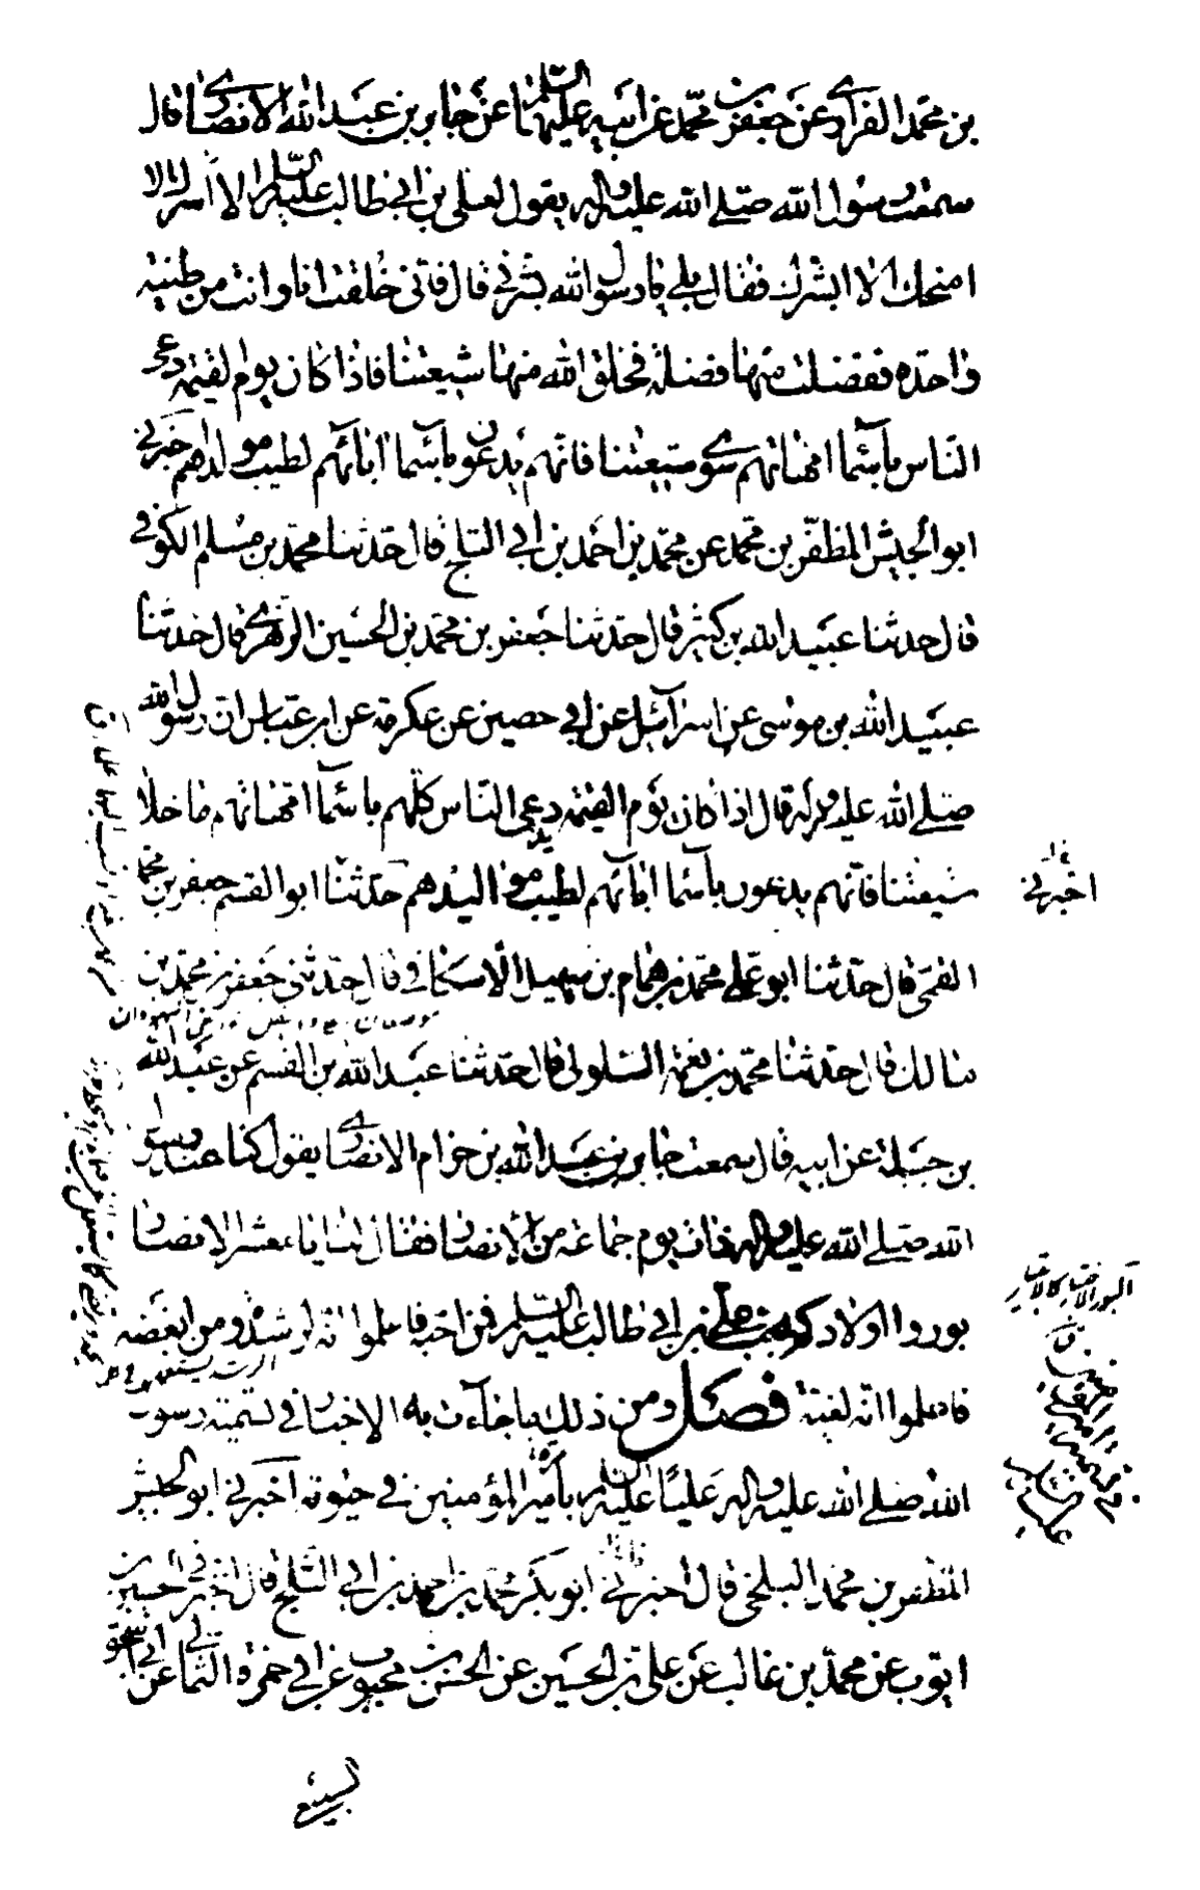 بن محمد الفزاري عن جعفر بن محمد عن ابيه عليهما السلام عن جابر بن عبد الله الانصاري قال
سمعت رسول الله صلى الله عليه واله يقول لعلي بن ابي طالب عليه السلام الا اسرك الا
امنحك الا ابشرك فقال بلى يا رسول الله بشرني قال فاني خلقت انا وانت من طينة
واحدة ففضلت منها فضلة فخلق الله منها شيعتنا فاذا كان يوم القيمة دعى
الناس باسماء امهاتهم سوى شيعتنا فانهم يدعون باسماء ابائهم لطيب مولدهم اخبرني
ابو الجيش المظفر بن محمد عن محمد بن احمد بن ابي الثلج قال حدثنا محمد بن مسلم الكوفي
قال حدثنا عبيد الله بن كثير قال حدثنا جعفر بن محمد بن الحسين الزهري قال حدثنا
عبيد الله بن موسى عن اسرائيل عن ابي حصين عن عكرمة عن ابن عباس ان رسول الله
صلى الله عليه واله قال اذا كان يوم القيمة يدعى الناس كلهم باسماء امهاتهم ما خلا
شيعتنا فانهم يدعون باسماء ابائهم لطيب مواليدهم حدثنا ابو القسم جعفر بن محمد
اخبرني
القمي قال حدثنا ابو علي محمد بن همام بن سهيل الاسكافي قال حدثني جعفر بن محمد بن
مالك قال حدثنا محمد بن نعمة السلولي قال حدثنا عبد الله بن القسم عن عبد الله
بن جبلة عن ابيه قال سمعت جابر بن عبد الله بن حزام الانصاري يقول كنا عند رسول
الله صلى الله عليه واله ذات يوم جماعة من الانصار فقال لنا يا معشر الانصار
بوروا اولادكم بحب علي بن ابي طالب عليه السلام فمن احبه فاعلموا انه لرشدة ومن ابغضه
فاعلموا انه لغية فصل ومن ذلك ما جاءت به الاخبار في تسمية رسول
الله صلى الله عليه واله عليا عليه السلام بامير المؤمنين في حيوته اخبرني ابو الجيش
المظفر بن محمد البلخي قال اخبرني ابو بكر محمد بن احمد بن ابي الثلج قال اخبرني الحسين بن
ايوب عن محمد بن غالب عن علي بن الحسين عن الحسن بن محبوب عن ابي حمزة الثمالي عن ابي اسحق
السبيعي